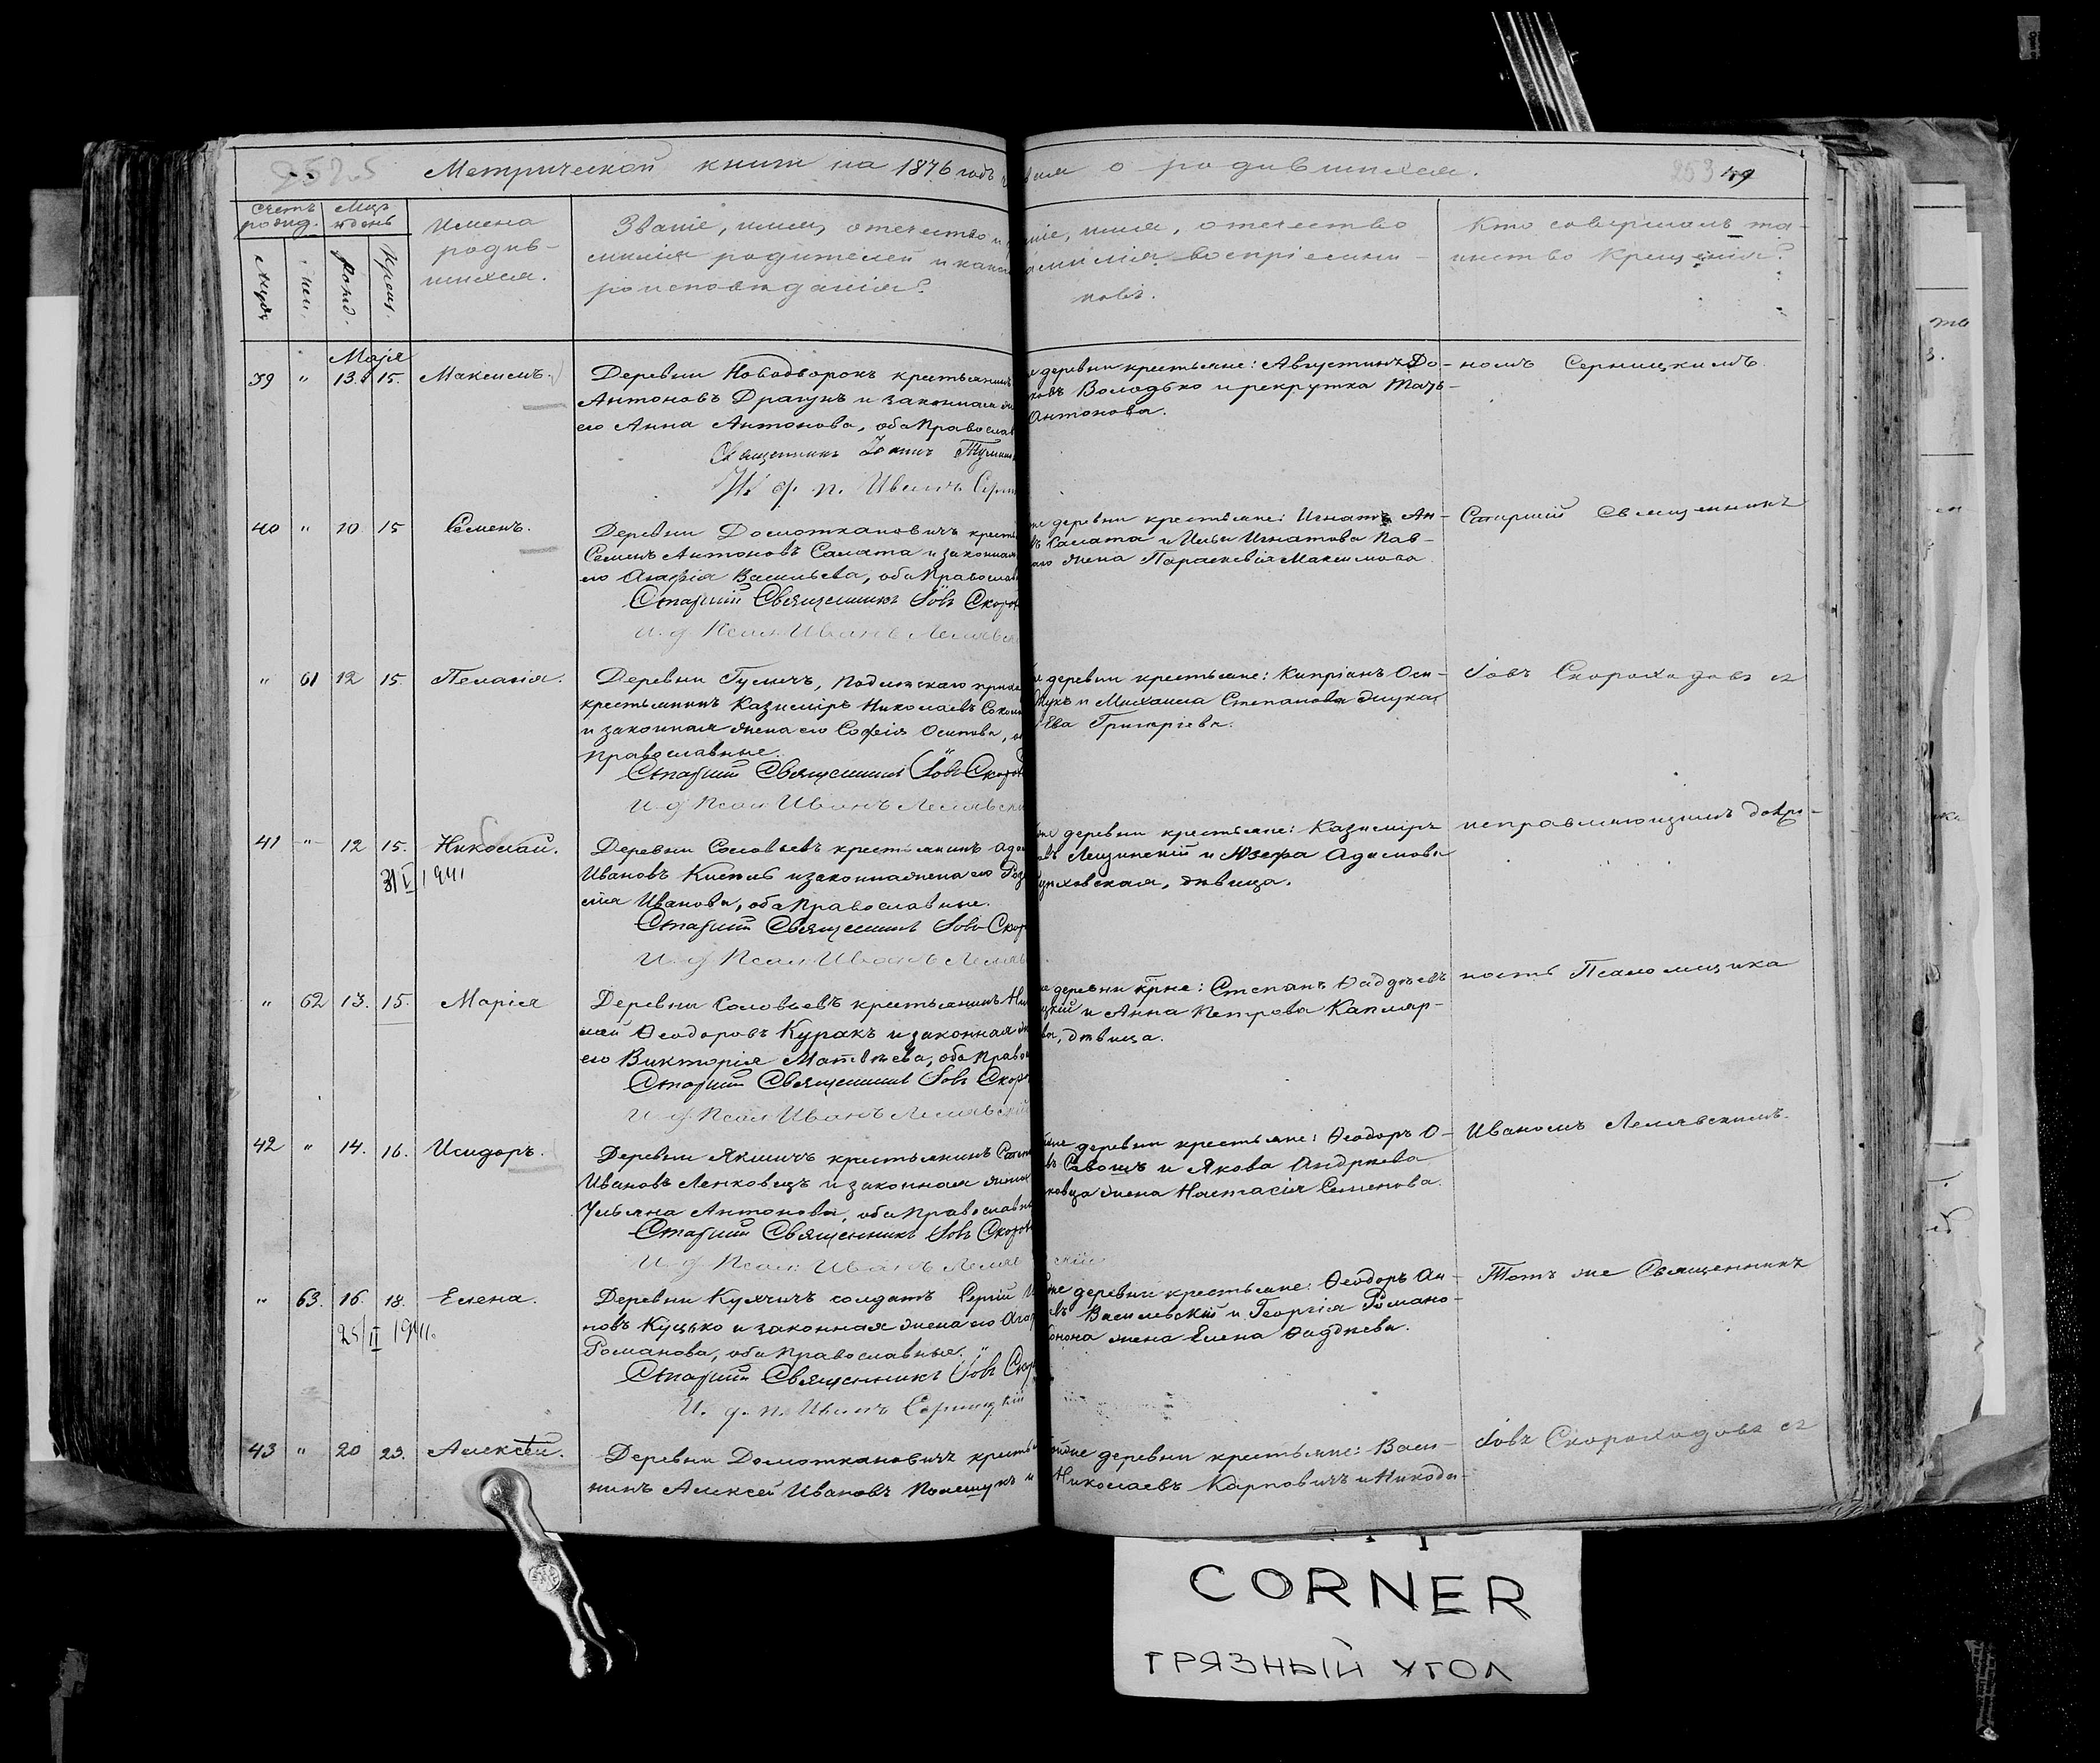 Метрической книги на 1876 годъ
о родившихся.
253 49
Счетъ родив. Мцъ и день
Имена родив-
шихся.
Званіе, имя, отечество и
милія родителей и како
роисповѣданія?
ніе, имя, отечество
амилія воспріемни-
ковъ.
Кто совершалъ та-
инство крещенія?
Маія
39 " 13. 15. Максимъ.
Деревни Новодворокъ крестьянинъ
Антоновъ Драгунъ и законная
его Анна Антонова, оба Православ
Священникъ Іоаннъ
И. д. п. Иванъ Серн
деревни крестьяне: Августинъ До-
ковъ Володько и рекрутка
Антонова.
номъ Серницкимъ.
40 " 10 15 Семенъ.
Деревни Домоткановичъ кресть
Семенъ Антоновъ Салата и законная
его Агафія Васильева, оба Православ
Старшій Священникъ Іовъ Скоро
И. д. Псал. Иванъ Лемявск
деревни крестьяне: Игнатъ Ан-
въ Салата и Ильи Игнатова Пав-
жена Параскевія Максимова
Старшій Священникъ
" 61 12 15. Пелагія.
Деревни Гуличъ, прихо
крестьянинъ Казиміръ Николаевъ
и законная жена его Софія Осипова, о
Православные.
Старшій Священникъ Іовъ Скоро
И. д. Псал. Иванъ Лемявски
деревни крестьяне: Кипріанъ Оси-
Жукъ и Михаила Степанова Жука
Ева Григоріева.
Іовъ Скороходовъ съ
41 " 12 15. Николай.
31 V 1941
Деревни Соловьевъ крестьянинъ Ада
Ивановъ Кисель и законная жена его Роза
лія Иванова, оба Православные.
Старшій Священникъ Іовъ Скор
И. д. Псал. Иванъ Лемяв
деревни крестьяне: Казиміръ
овъ Лещинскій и Юзефа Адамова
ховская, дѣвица.
исправляющимъ долж-
" 62 13. 15. Марія
Деревни Соловьевъ крестьянинъ Ни
лай Ѳеодоровъ Куракъ и законная ж
его Викторія Матвѣева, оба Право
Старшій Священникъ Іовъ Скор
И. д. Псал. Иванъ Лемявскій
деревни крне: Степанъ Ѳаддѣевъ
цкій и Анна Петрова Капляр-
ва, дѣвица.
ность Псаломщика
42 " 14. 16. Исидоръ.
Деревни Якшичъ крестьянинъ
Ивановъ Ленковецъ и законная жена
Ульяна Антонова, оба Православн
Старшій Священникъ Іовъ Скоро
И. д. Псал. Иванъ Лемяв скій
деревни крестьяне: Ѳеодоръ О-
въ Савошъ и Якова Андреева
ковца жена Настасія Семенова.
Иваномъ Лемявскимъ.
" 63. 16. 18. Елена.
25/II 1941.
Деревни Кулчичъ солдатъ Сергій И
повъ Куцько и законная жена его Ага
Романова, оба Православные.
Старшій Священникъ Іовъ Скор
И. д. п. Иванъ Серницкій
же деревни крестьяне: Ѳеодоръ Ан-
евъ Васильевскій и Георгія Романо-
жена Елена Ѳаддѣева.
Тотъ же Священникъ
43 " 20 23. Алексѣй.
Деревни Домоткановичъ крестья
нинъ Алексѣй Ивановъ Полещукъ и
деревни крестьяне: Васи-
Николаевъ Карповичъ и Никоди-
Іовъ Скороходовъ съ
CORNER
ГРЯЗНЫЙ УГОЛ